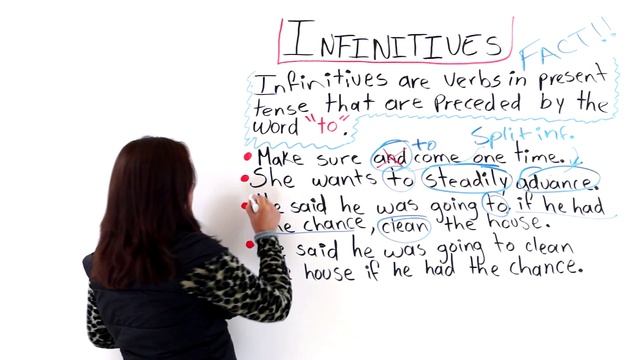 INFINITIVES
FACT!!
Infinitives are verbs in present
tense that are preceded by the
word "to".
to
Split inf.
Make sure and come one time.
She wants to steadily advance.
said he was going to if he had
chance, clean the house.
said he was going to clean
house if he had the chance.